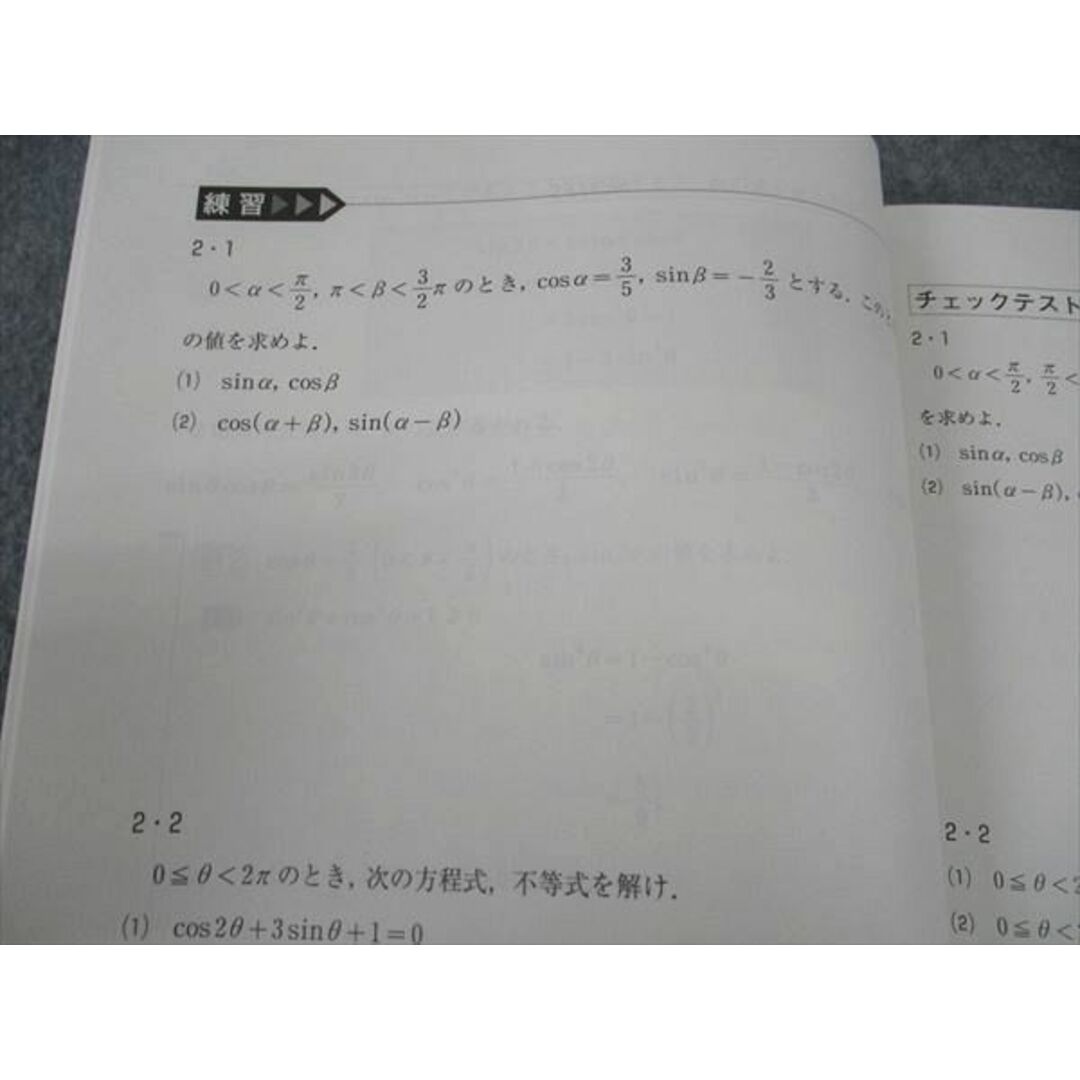 練習
2・1
0<α<π/2, π<β<3/2πのとき, cosα=3/5, sinβ=-2/3 とする. この
の値を求めよ.
(1) sinα, cosβ
(2) cos(α+β), sin(α-β)
2・2
0≦θ<2πのとき, 次の方程式, 不等式を解け.
(1) cos2θ+3sinθ+1=0
チェックテスト
2・1
0<α<π/2, π/2<
を求めよ.
(1) sinα, cosβ
(2) sin(α-β),
2・2
(1) 0≦θ<2
(2) 0≦θ<